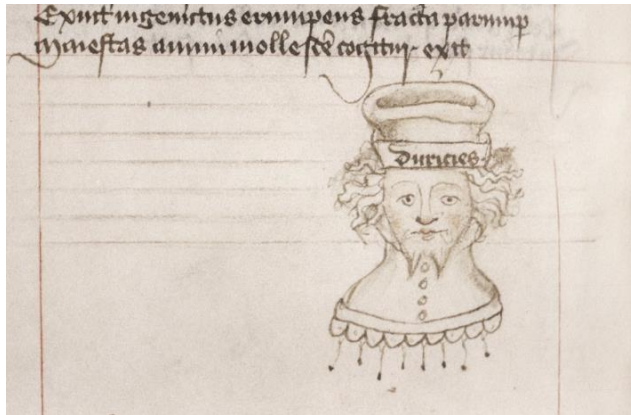 Exiit ingemitus erumpens fracta parump̱
Maiestas animi mollesce̅ cogitur exit
Duricies